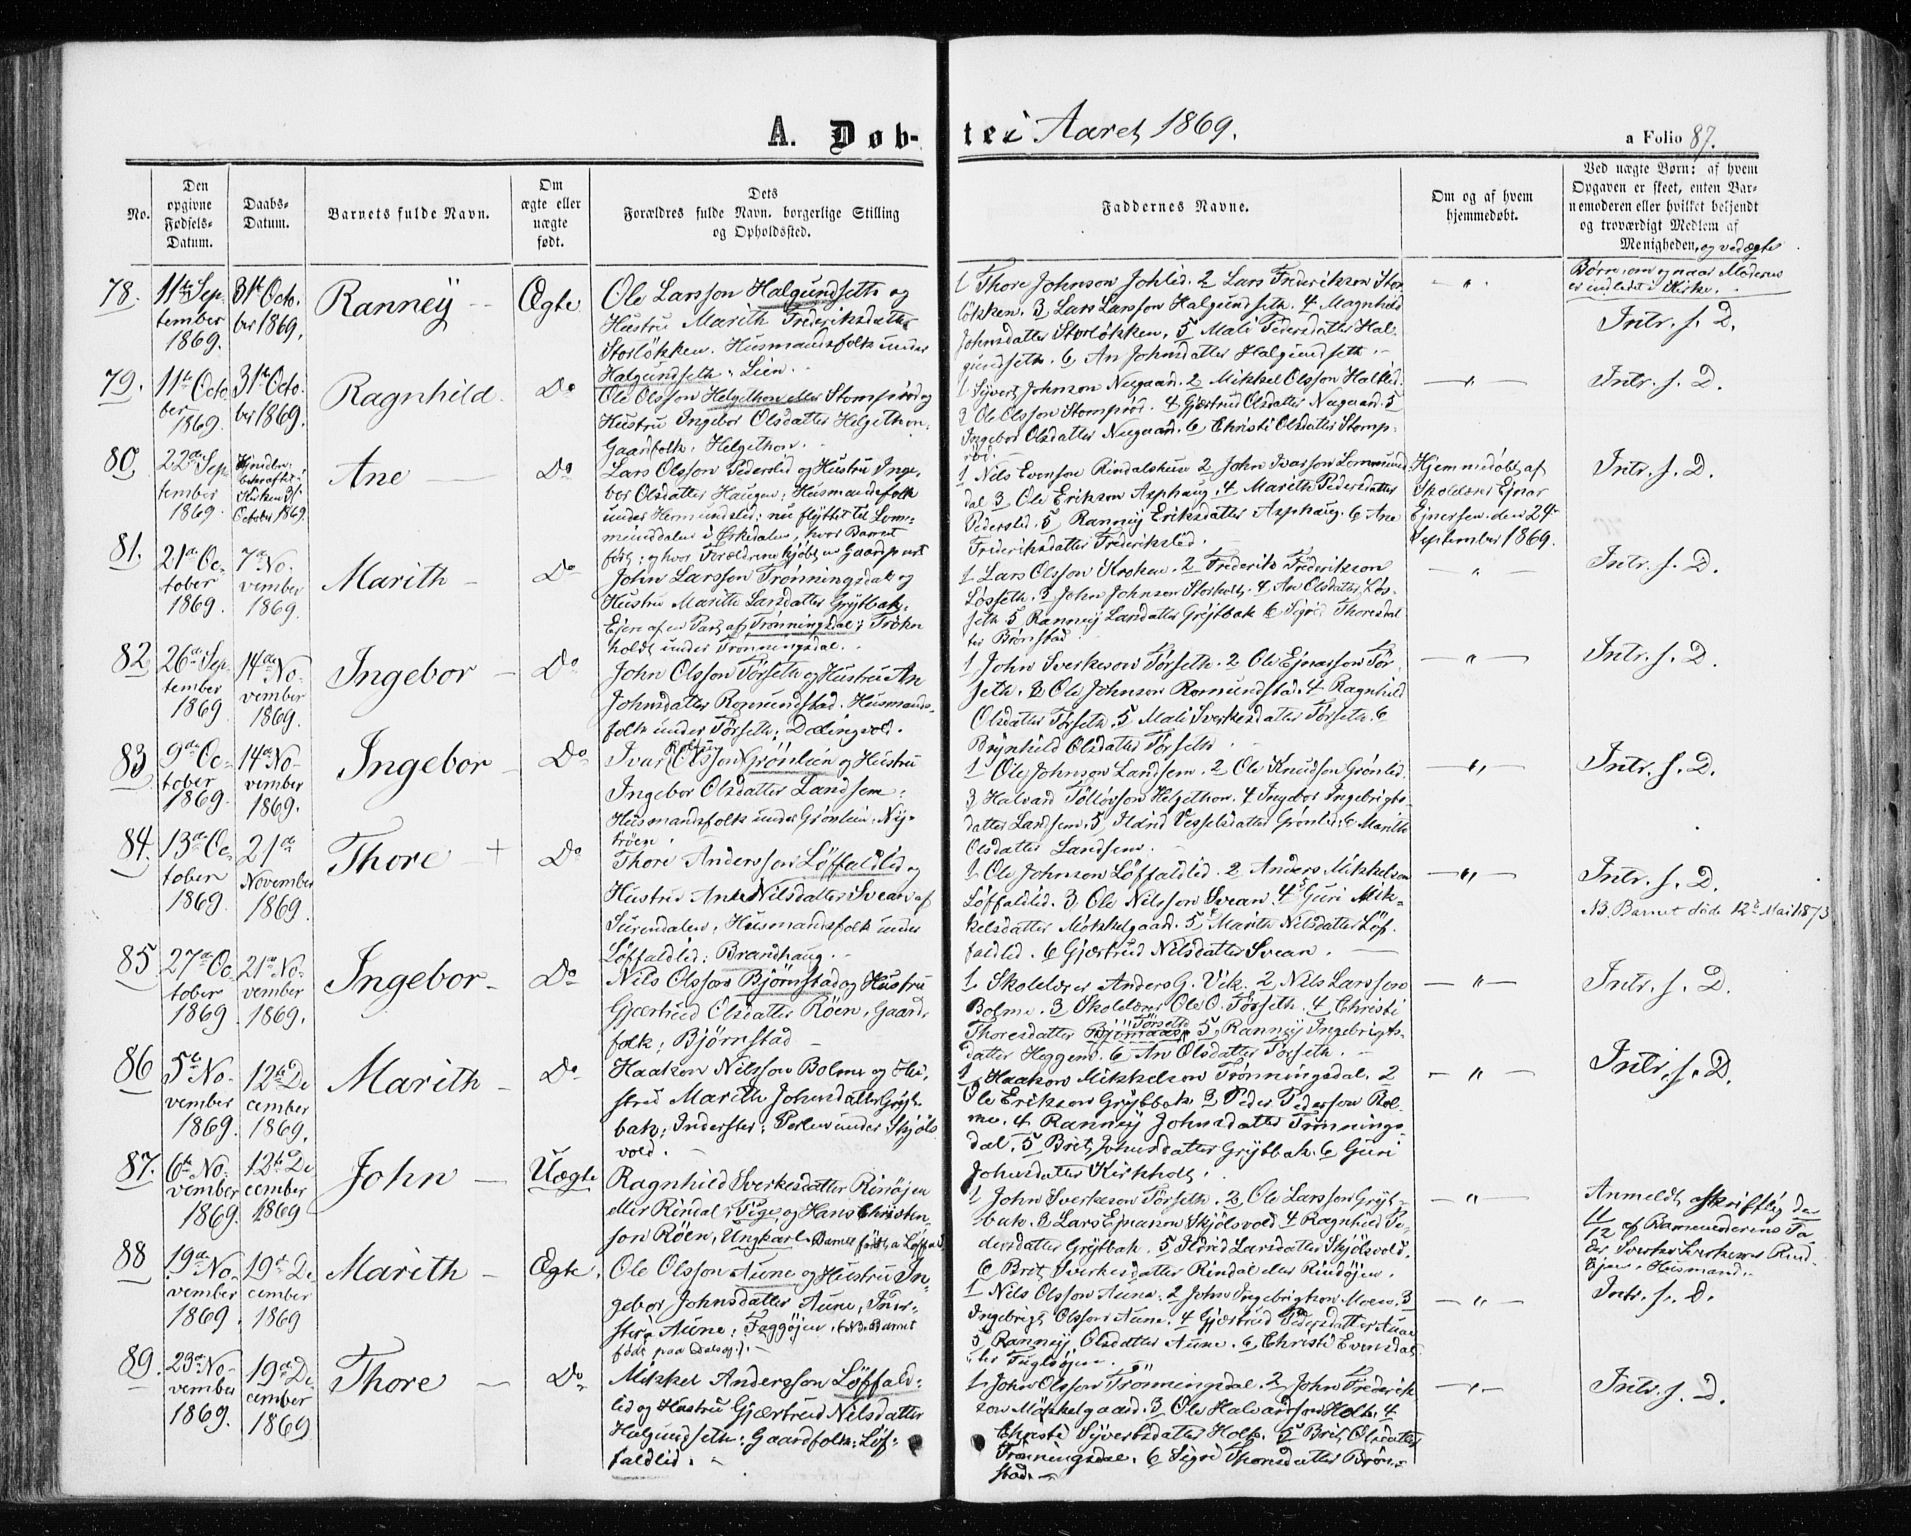 A. Døb-
te i Aaret 1869.
a Folio 87.
No.
Den opgivne Fødsels-Datum.
Daabs-Datum.
Barnets fulde Navn.
Om ægte eller uægte født.
Dets
Forældres fulde Navn, borgerlige Stilling
og Opholdssted.
Faddernes Navne.
Om og af hvem
hjemmedøbt.
Ved uægte Børn: af hvem
Opgaven er skeet, enten Bar-
nemoderen eller hvilket beljendt
og troværdigt Medlem af
Menigheden, og ved ægte
Børn, om og naar Moderen
er indledt i Kirke.
78.
11te Sep
tember
1869.
31te Octo
ber 1869.
Ranneÿ
Ægte
Ole Larsson Halgundseth og
Hustru Marith Frederiksdatter
Storløkken. Husmandsfolk under
Halgundseth: Lien.
1 Thore Johnson Johlid. 2 Lars Frederikson Stor
løkken. 3 Lars Larsson Halgundseth. 4 Magnhild
Johnsdatter Storløkken. 5 Mali Pedersdatter Hal-
gundseth. 6 An Johnsdatter Halgundseth.
Intr. s. D.
79.
11te Octo
ber
1869.
31te Octo
ber 1869.
Ragnhild
Do
Ole Olsson Helgethon eller Stomprød og
Hustru Ingebor Olsdatter Helgethon.
Gaardfolk. Helgethon.
1 Sÿvert Johnson Nergaard. 2 Mikkel Olsson Halled.
3 Ole Olsson Stomprød. 4 Gjertrud Olsdatter Nergaard. 5
Ingebor Olsdatter Nergaard. 6 Christi Olsdatter Stomp-
rød.
Intr. s. D.
80.
22de Sep
tember
1869.
October 1869.
Ane
Do
Lars Olsson Pederslid og Hustru Inge
bor Olsdatter Haugen: Husmandsfolk
under Hermundslid: nu flyttet til Lom-
munddalen i Ørkedalen, hvor Barnet
født: og hvor Forældrene kjøbt en Gaardpart
1 Nils Evenson Rindalshuus 2 John Ivarsson Lommund
dal 3 Ole Erikson Asphaug. 4 Marith Pedersdatter
Pederslid. 5 Ranneÿ Eriksdatter Asphaug. 6 Ane
Frederiksdatter Frederikslid.
Hjemmedøbt af
Skolelærer Ejnar
Ejnersen den 24de
September 1869.
Intr. s. D.
81.
21de Oc-
tober
1869.
7de No-
vember
1869.
Marith
Do
John Larsson Trønningsdal og
Hustru Marith Larsdatter Grÿtbak:
Ejere af en Part af Trønningsdal;
holdt under Trønningsdal.
1 Lars Olsson Kroken. 2 Frederik Frederikson
Løsseth. 3 John Johnson Storholt. 4 An Olsdatter Løs-
seth 5 Ranneÿ Larsdatter Grÿtbak 6 Sigrid Thoresdat
ter Brønstad.
Intr. s. D.
82
26de Sep
tember
1869
14de No-
vember
1869.
Ingebor
Do
John Olsson Tørseth og Hustru An
Johnsdatter Romundstad. Husmands-
folk under Tørseth:
1 John Sverkeson Tørseth. 2 Ole Ejnarsson Tør-
seth. 3 Ole Johnson Romundstad. 4 Ragnhild
Olsdatter Tørseth. 5 Mali Sverkesdatter Tørseth. 6
Brÿnhild Olsdatter Tørseth.
Intr. s. D.
83.
9de Oc-
tober
1869.
14de No-
vember
1869.
Ingebor
Do
Ivar Olsson Grønlien og Hustru
Ingebor Olsdatter Landsem:
Husmandsfolk under Grønlien: Nÿ-
trøen.
1 Ole Johnson Landsem. 2 Ole Knudson Grønlid.
3 Halvard Tollovson Helgethon. 4 Ingebor Ingebrigts-
datter Landsem. 5 Ildrid Vesselsdatter Grønlid. 6 Marith
Olsdatter Landsem.
Intr. s. D.
84.
13de Oc-
tober
1869.
21de
November
1869.
Thore +
Do
Thore Andersson Løffaldlid og
Hustru Ane Nilsdatter Svean af
Surendalen, Husmandsfolk under
Løffaldlid: Brandhaug.
1 Ole Johnson Løffaldlid. 2 Anders Mikkelson
Løffaldlid. 3 Ole Nilsson Svean. 4 Guri Mik-
kelsdatter Møkkelgaard. 5 Marith Nilsdatter Løf-
faldlid. 6 Gjærtrud Nilsdatter Svean.
Intr. s. D.
NB. Barnet døde 12te Mai 1873
85
27de Oc
tober
1869
21de No-
vember
1869.
Ingebor
Do
Nils Olsson Bjørnstad og Hustru
Gjærtrud Olsdatter Røen, Gaard-
folk: Bjørnstad
1 Skolelærer Anders G. Vik. 2 Nils Larsson
Bolme. 3 Skolelærer Ole O. Tørseth. 4 Christi
Thoresdatter Tørseth 5 Ranneÿ Ingebrigts-
datter Heggem. 6 An Olsdatter Tørseth.
Intr. s. D.
86
5te No-
vember
1869.
12te De
cember
1869.
Marith
Do
Haakon Nilsson Bolme og Hu-
stru Marith Johnsdatter Grÿt-
bak: Inderster: under Skjøls
vold.
1 Haakon Mikkelson Trønningsdal. 2
Ole Erikson Grÿtbak 3 Peder Pederson Bol-
me. 4 Ranneÿ Johnsdatter Trønnings-
dal. 5 Brit Johnsdatter Grÿtbak. 6 Guri
Johnsdatter Kirkholt.
Intr. s. D.
87.
6te No-
vember
1869.
12te De
cember
1869
John
Uægte
Ragnhild Sverkesdatter Rindøjen
eller Rindal: Pige og Hans Christen-
son Røen, Ungkarl. Barnet født paa Løffald
1 John Sverkeson Tørseth. 2 Ole Larsson Grÿt-
bak. 3 Lars Ejnarson Skjølsvold 4 Ragnhild Pe-
dersdatter Grÿtbak. 5 Ildrid Larsdatter Skjølsvold.
6 Brit Sverkesdatter Rindal eller Rindøjen.
Anmeldt skriftlig den
11/12 af Barnemoderens Fa-
der Sverke Sverkeson Rind-
øjen, Husmand.
88
19de No-
vember
1869.
19de De
cember
1869
Marith
Ægte.
Ole Olsson Aune og Hustru In-
gebor Johnsdatter Aune, Inder-
ster: Aune: Faggøjen. (NB. Barnet
født paa Dalsøj).
1 Nils Olsson Aune. 2 John Ingebrigtson Moen. 3
Ingebrigt Olsson Aune. 4 Gjærtrud Pedersdatter Aune
5 Ranneÿ Olsdatter Aune. 6 Christi Evensdat
ter Fuglsøjen.
Intr. s. D.
89.
23de No-
vember
1869.
19de De
cember
1869
Thore
Do
Mikkel Andersson Løffald-
lid og Hustru Gjærtrud Nilsdatter
Halgundseth: Gaardfolk: Løf-
faldlid.
1 John Olsson Trønningsdal. 2 John Frederik
son Møkkelgaard. 3 Ole Halvardson Holte. 4
Christi Sÿvertsdatter Holte. 5 Brit Olsdatter
Trønningsdal. 6 Sigrid Thoresdatter Brøn-
stad.
Intr. s. D.